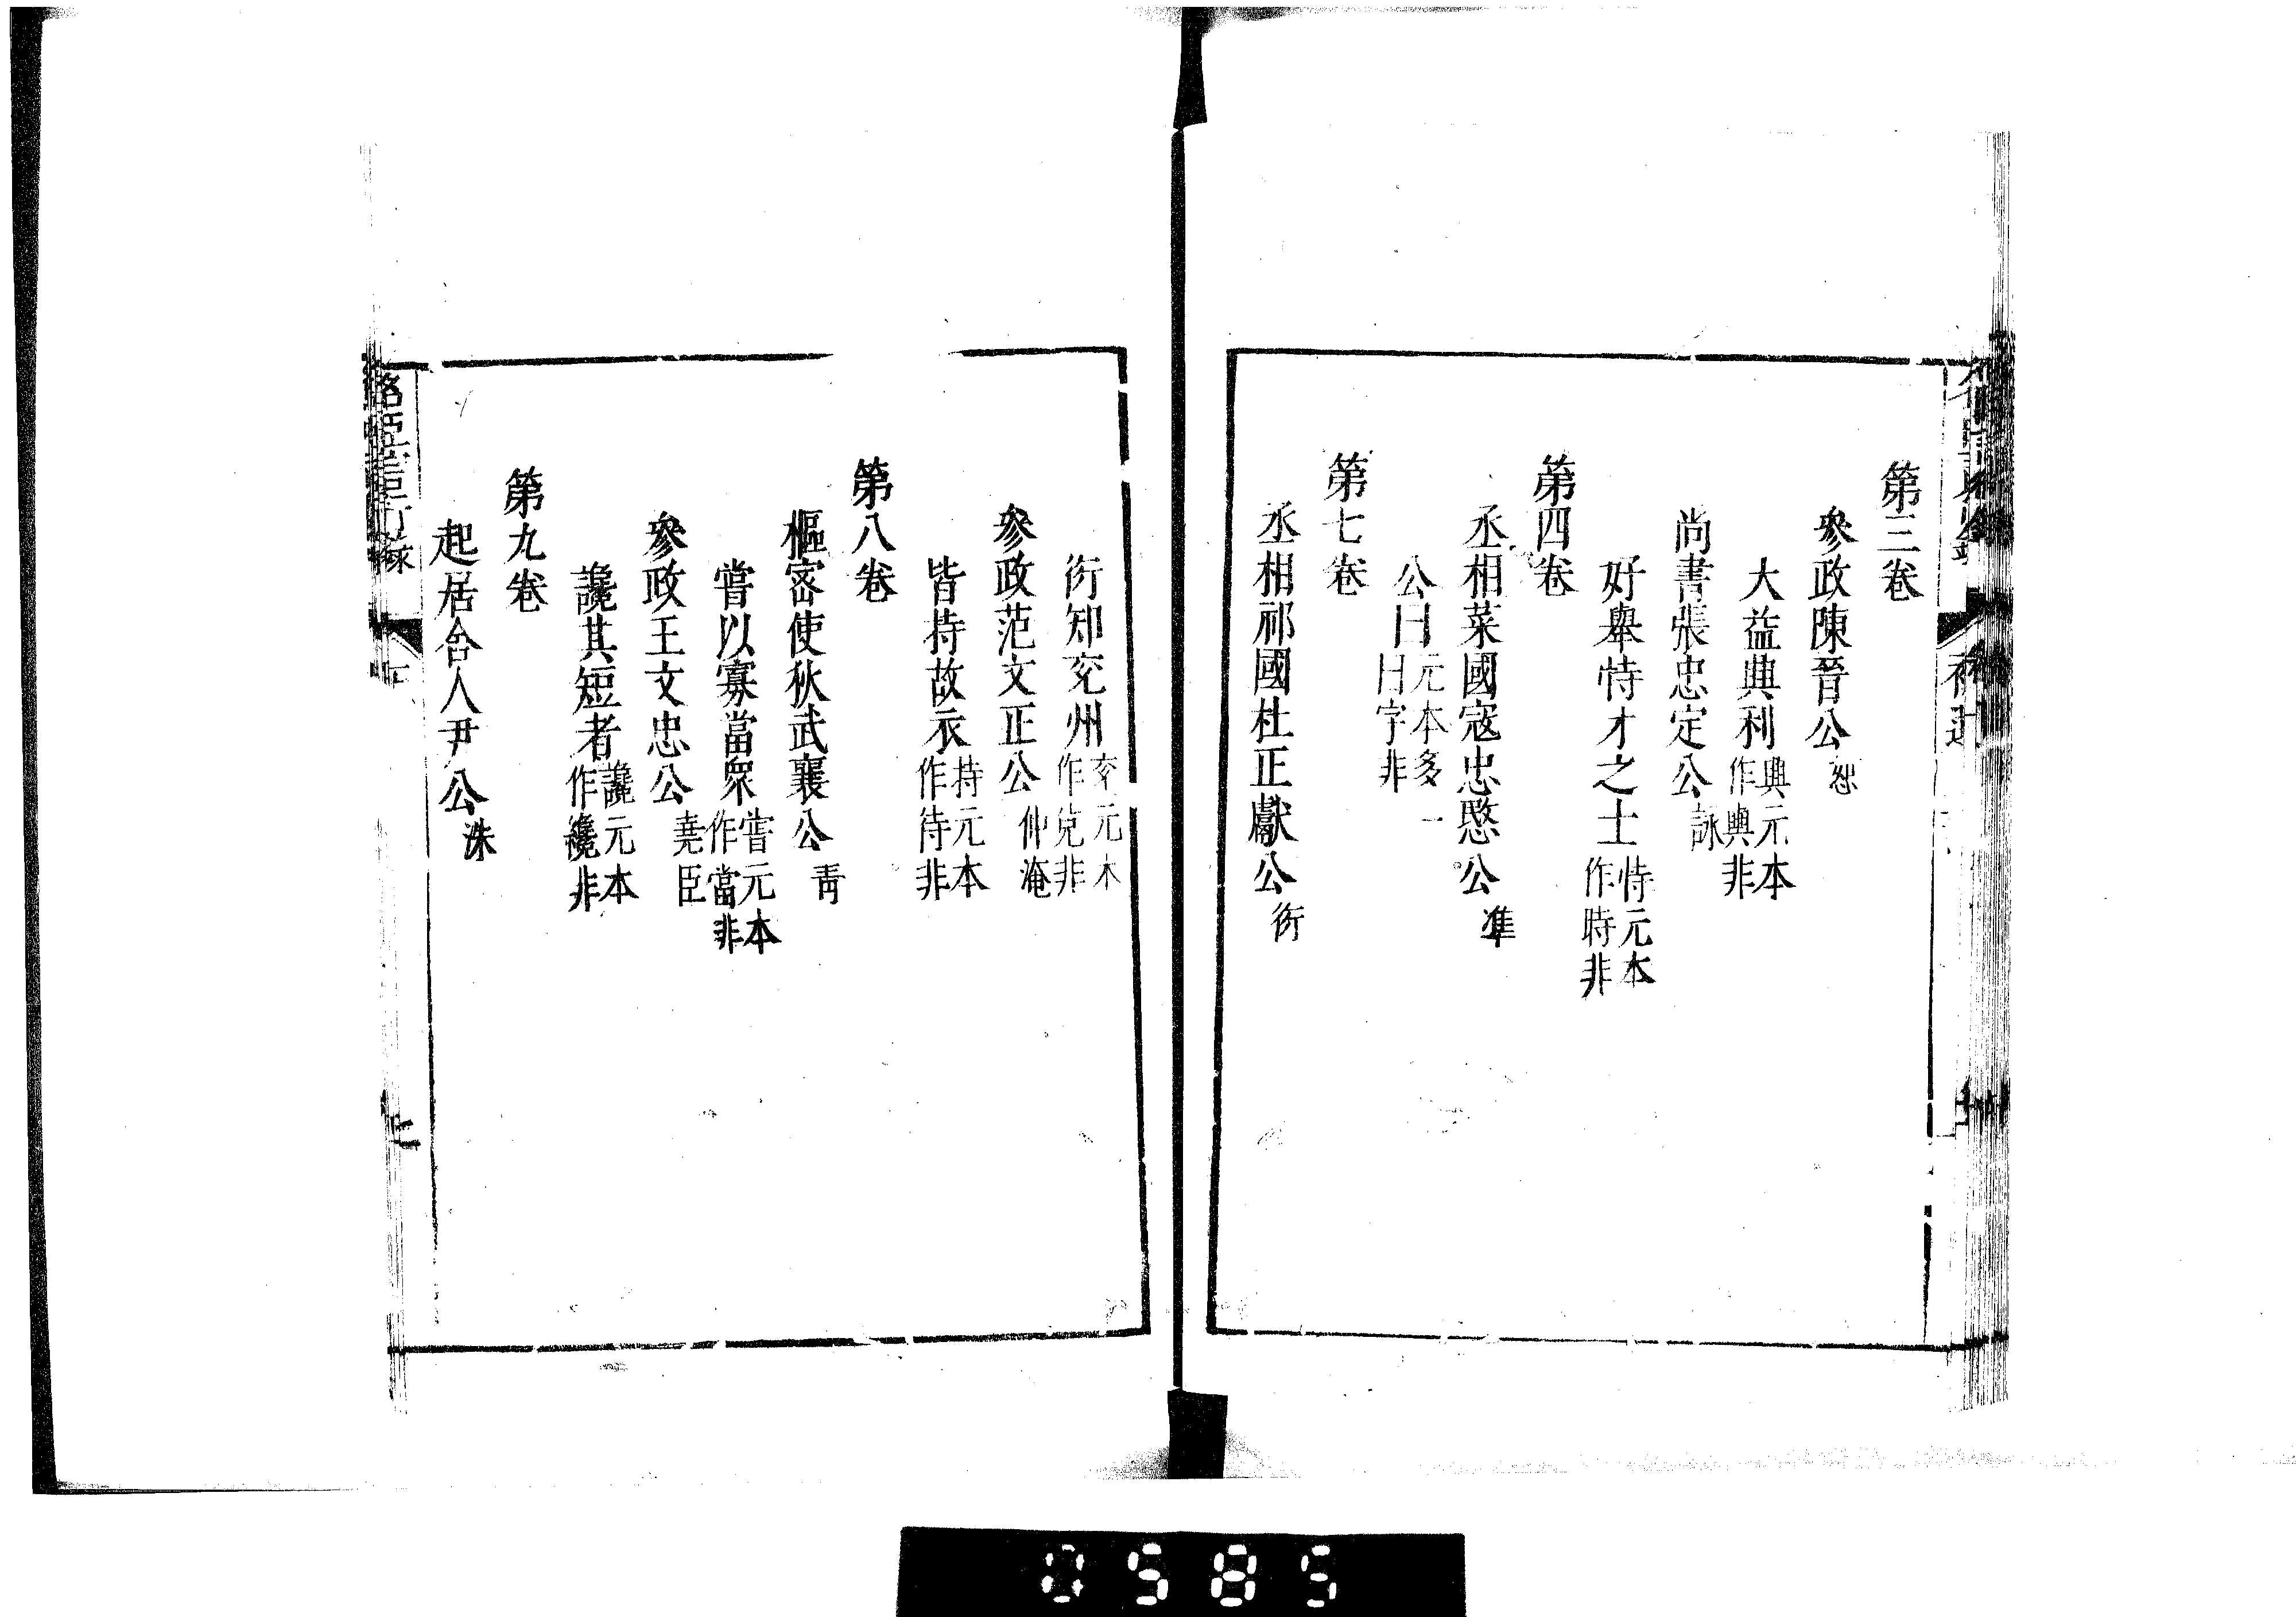 第三卷
參政陳晉公恕
大益典利典元本作興非
尚書張忠定公詠
好舉恃才之士恃元本作時非
第四卷
丞相萊國寇忠愍公準
公曰元本多一曰字非
第七卷
丞相祁國杜正獻公衍
衍知兗州兗元本作兌非
參政范文正公仲淹
皆持故衣持元本作待非
第八卷
樞密使狄武襄公青
嘗以寡當衆嘗元本作當非
參政王文忠公堯臣
讒其短者讒元本作纔非
第九卷
起居舍人尹公洙
0585